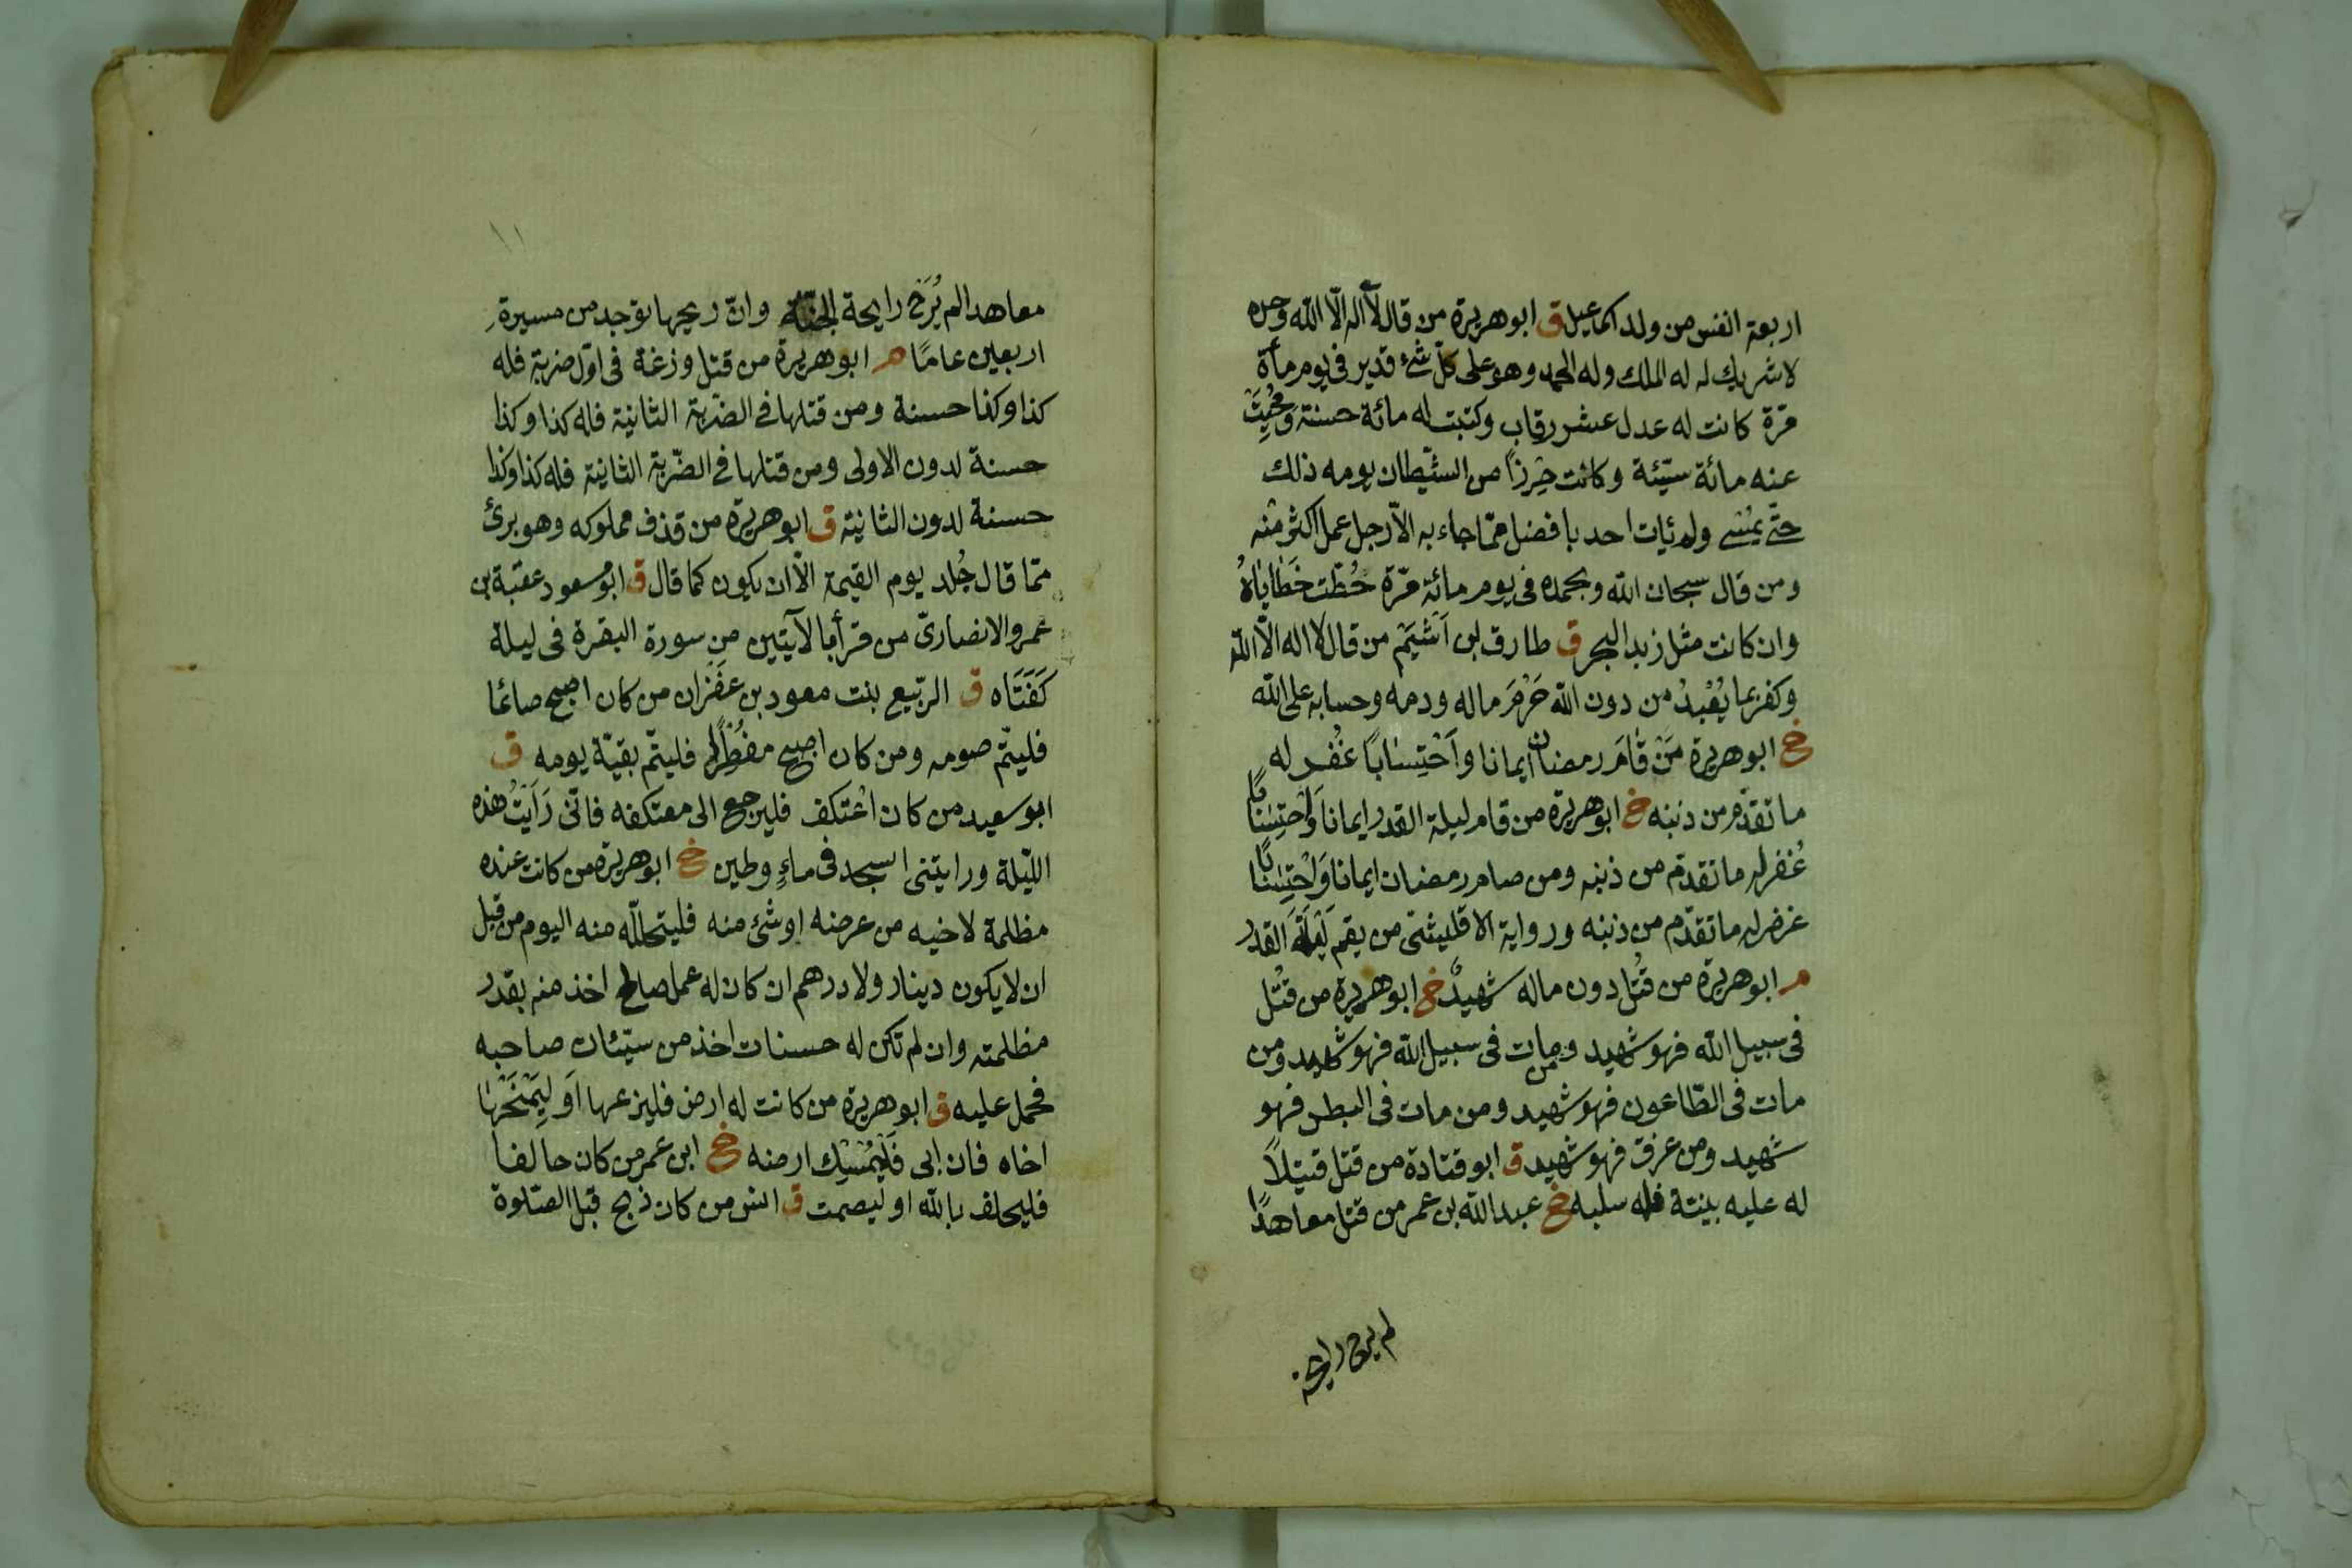 اربعة انفس من ولد اسماعيل ق ابو هريرة من قال لا اله الّا اللّه وحده
لا شريك له له الملك وله الحمد وهو على كلّ شئ قدير فى يوم مأة
مرّة كانت له عدل عشر رقاب وكتبت له مائة حسنة وَمُحِيَتْ
عنه مائة سيّئة وكانت حِرزاً من الشّيطان يومه ذلك
حتّى يمُسى ولم يأت احد بافضل ممّا جاء به الاّ رجل عمل اكثر منه
ومن قال سبحان اللّه وبحمده فى يوم مائة مرّة حُطّت خَطَاياهُ
وان كانت مثل زبد البحر ق طارق ابن اَشْيَمْ من قال لا اله الّا اللّه
وكفر بما يُعْبدُ من دون اللّه حَرُمَ ماله ودمه وحسابه على اللّه
خ ابو هريرة مَنْ قَامَ رمضان ايمانا واَحْتِسَاباً غُفر له
ما تقدّم من ذنبه خ ابو هريرة من قام ليلة القدر ايمانا وَاْحتِسَاباً
غُفر له ما تقدّم من ذنبه ومن صام رمضان ايمانا وَاحْتِسَاباً
غفر له ما تقدّم من ذنبه ورواية الاقليشّى من يقم لَيْلَةَ القدر
م ابو هريرة من قُتل دون ماله شهيدٌ خ ابو هريرة من قُتل
فى سبيل اللّه فهو شهيد ومن مات فى سبيل اللّه فهو شهيد ومن
مات فى الطّاعون فهو شهيد ومن مات فى البطن فهو
شهيد ومن غرق فهو شهيد ق ابو قتادة من قتل قتيلاً
له عليه بيّنة فله سلبه خ عبد اللّه بن عمر من قتل معاهدًا
لم يرح رايحة
١١
معاهدا لم يُرَحْ رايحة الجنّة وانّ ريحها توجد من مسيرة
اربعين عامًا م ابو هريرة من قتل وزغة فى اوّل ضربة فله
كذا وكذا حسنة ومن قتلها فى الضّربة الثانية فله كذا وكذا
حسنة لدون الاولى ومن قتلها فى الضّربة الثانية فله كذا وكذا
حسنة لدون الثانية ق ابو هريرة من قذف مملوكه وهو برئ
ممّا قال جُلد يوم القيمة الاّ ان يكون كما قال ق ابو مسعود عقبة بن
عمرو الانصارىّ من قرأ بالآيتين من سورة البقرة فى ليلة
كَفَتَاه ق الربّيع بنت معود بن عَفْران من كان اصبح صائما
فليتّم صومه ومن كان اصبح مفُطْرًا فليتّم بقيّة يومه ق
ابو سعيد من كان اعْتكف فليرجع الى معتكفه فانّى رَاَيتُ هذه
اللّيلة ورايتنى اسجد فى ماءٍ وطين خ ابو هريرة من كانت عنده
مظلمة لاخيه من عرضه او شئ منه فليتحللّه منه اليوم من قبل
ان لا يكون دينار ولا درهم ان كان له عمل صالح اخذ منه بقدر
مظلمته وان لم تكن له حسنات اخذ من سيّئات صاحبه
فحمل عليه ق ابو هريرة من كانت له ارض فليزرعها اَو لِيَمْنَحْهَا
اخاه فان ابى فَلْيُمْسِك ارضه خ ابن عمر من كان حالفا
فليحلف باللّه او ليصمت ق انس من كان ذبح قبل الصّلوة